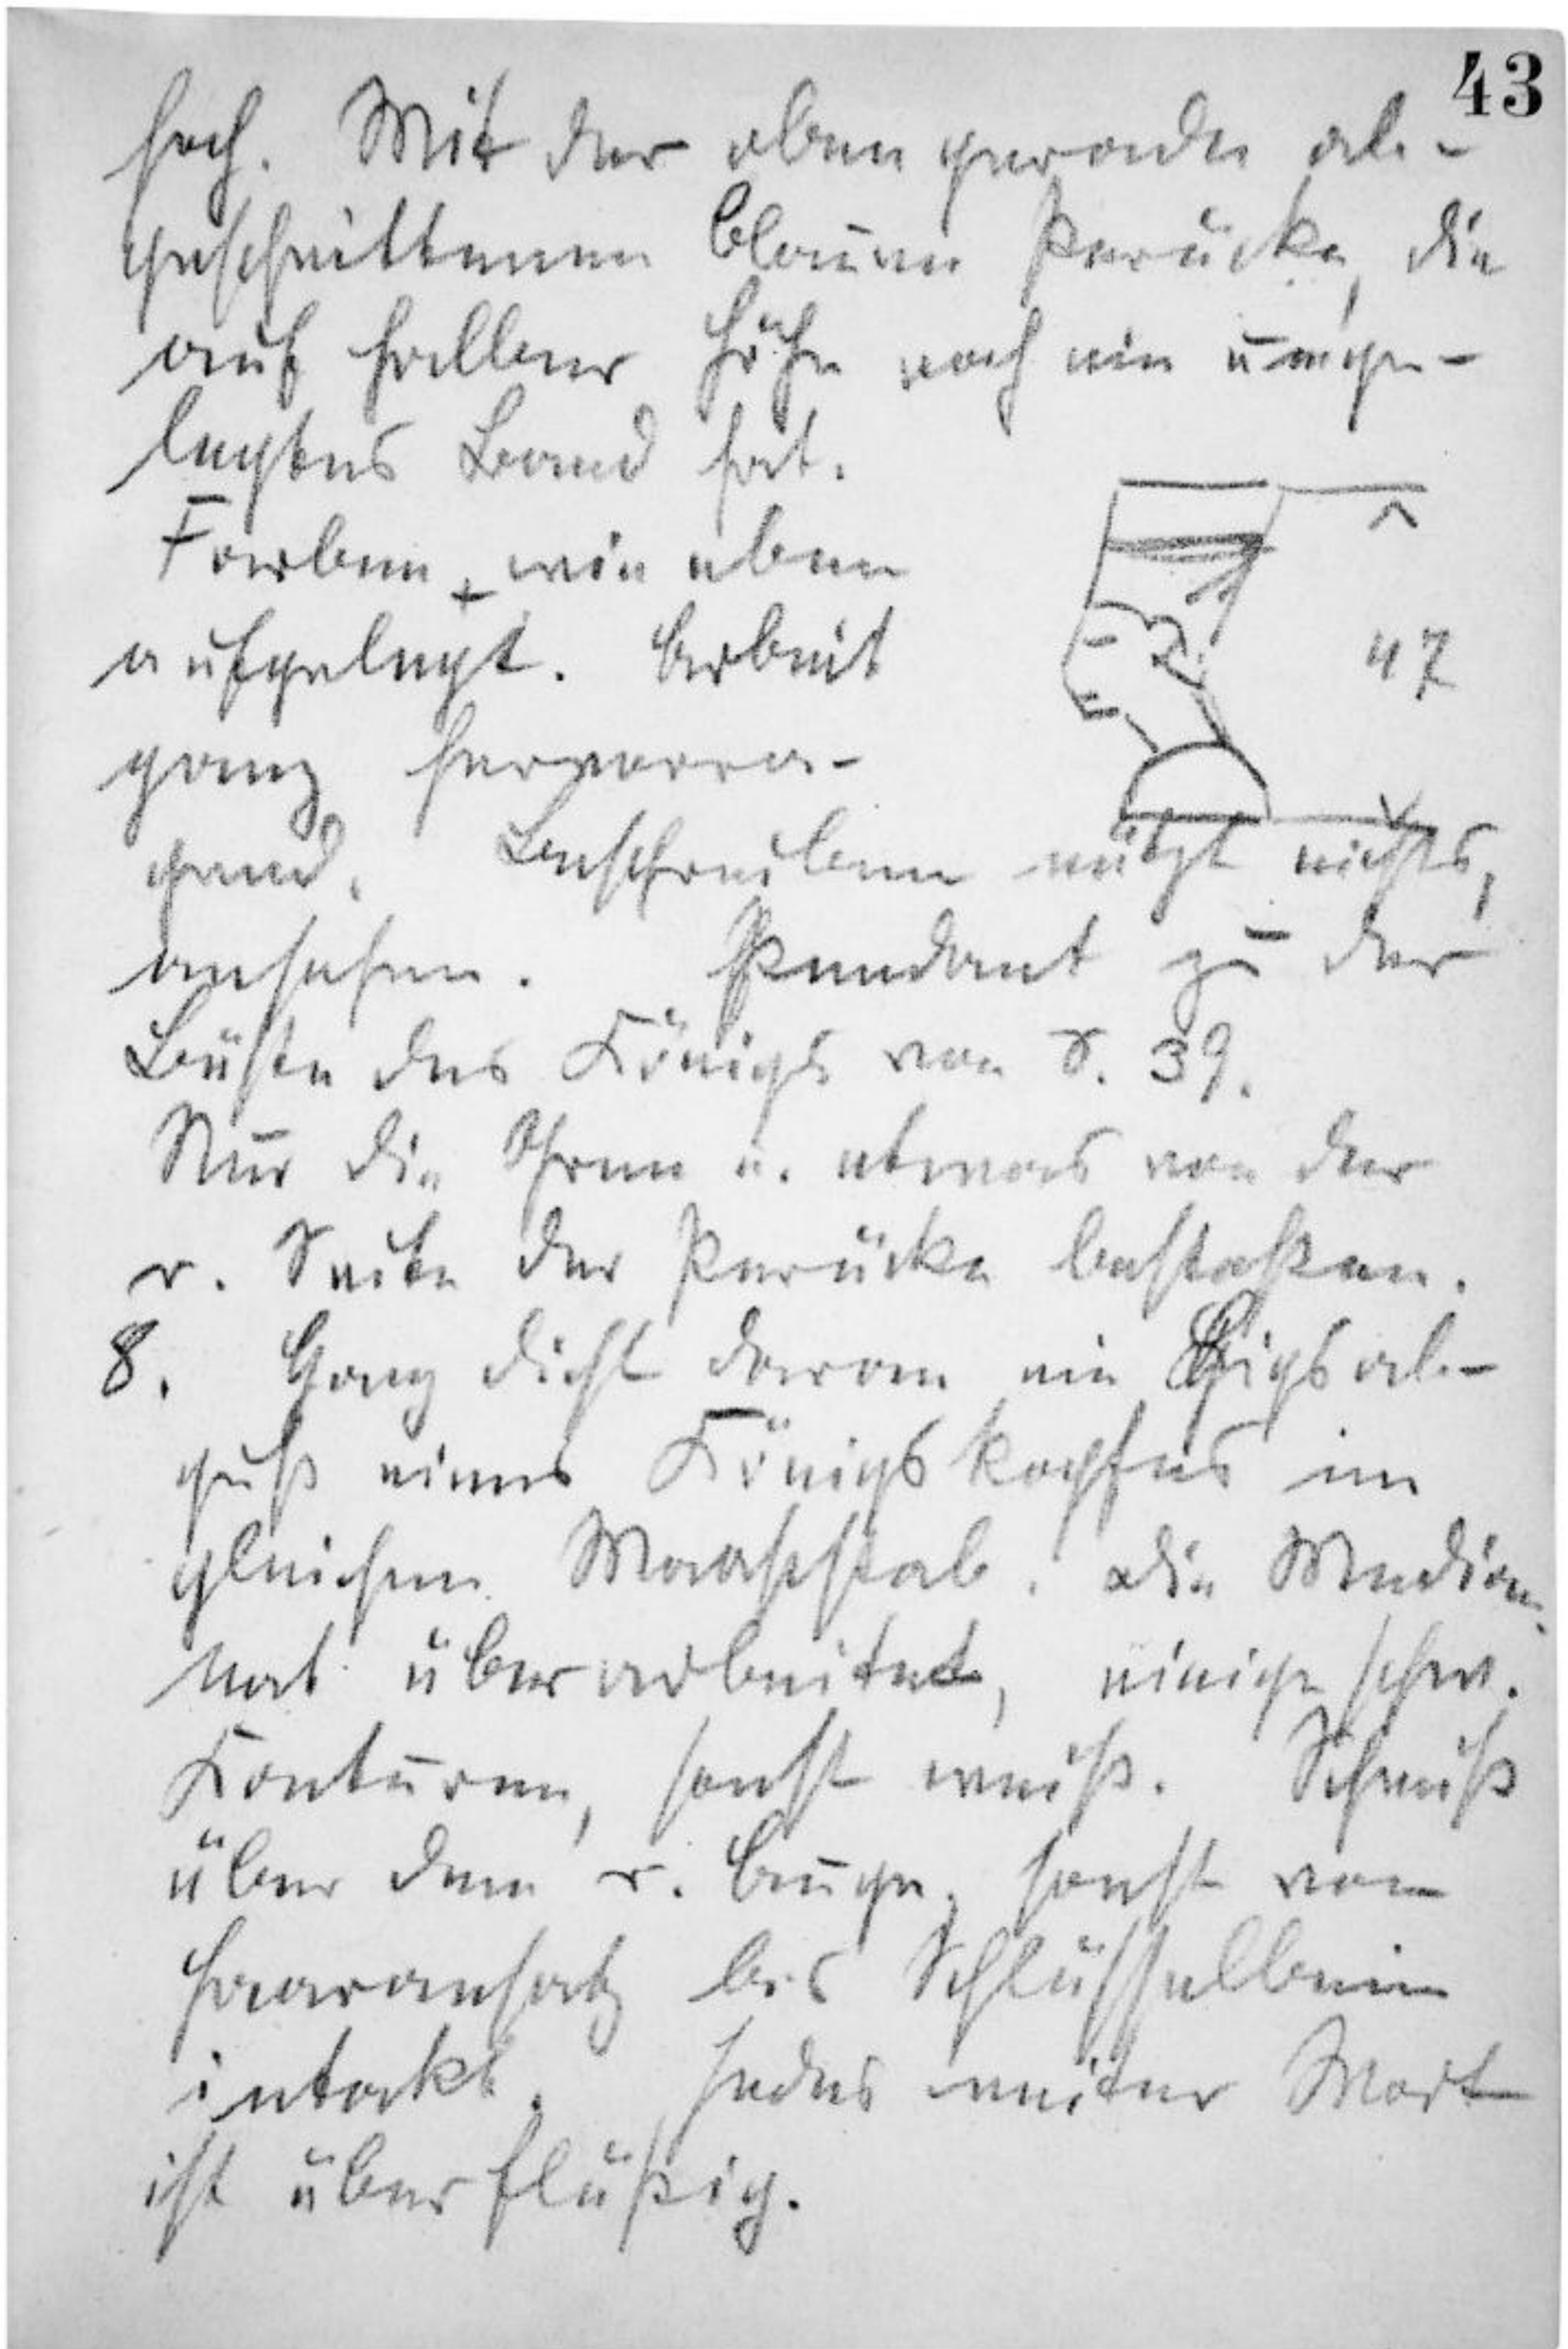 43
hoch. Mit der oben gerade ab-
geschnittenen blauen Perücke, die
auf halber Höhe noch ein umge-
legtes Band hat.
Farben wie eben
aufgelegt. Arbeit
47
ganz hervorra-
gend. Beschreiben nützt nichts,
ansehen. Pendant zu der
Büste des Königs von S. 39.
Nur die Ohren u. etwas von der
r. Seite der Perücke bestoßen.
8. Ganz dicht daran ein Gipsab-
guß eines Königskopfes im
gleichen Maasstab. Die Median-
nat überarbeitet, einige schw.
Konturen, sonst weiß. Schmiß
über dem r. Auge, sonst von
Haaransatz bis Schlüsselbein
intakt. Jedes weitere Wort
ist überflüßig.